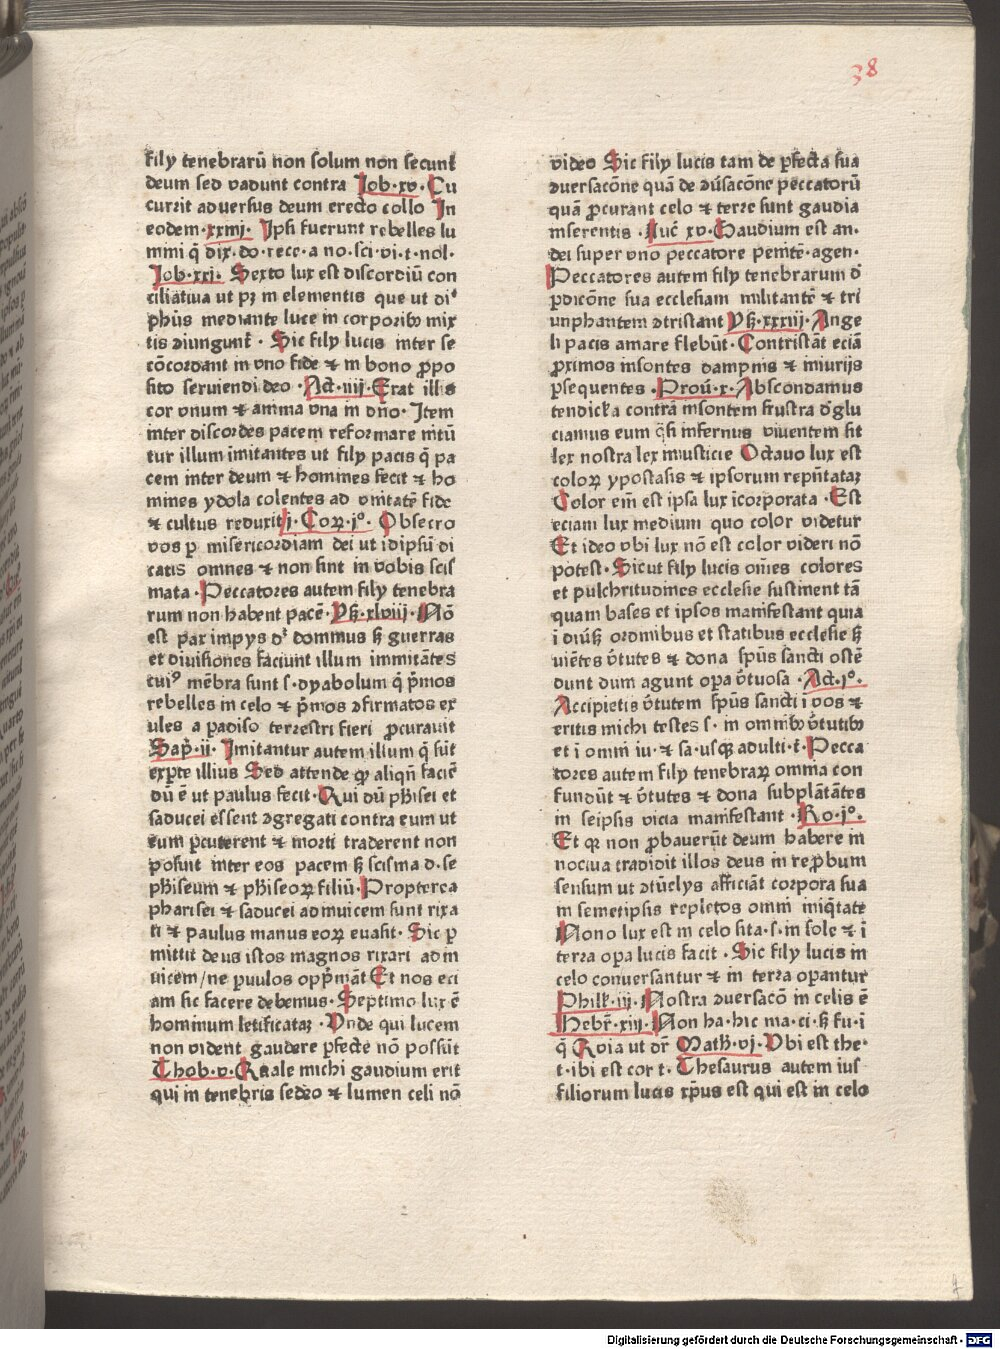 38
fily tenebrarū non solum non secunt̄
deum sed vadunt contra Iob·xv· Cu
currit adversus deum erecto collo In
eodem·xxiiij· Ipsi fuerunt rebelles lu
mini q̄ dix·do·rece·a no·sci·vi·t·nol·
Iob·xxi· Sexto lux est discordiū con
ciliativa ut pꝫ in elementis que ut di
phūs mediante luce in corporibꝰ mix
tis ꝯiungunt̄· Sic fily lucis inter se
cōcordant in vno fide ⁊ in bono ꝓpo
sito serviendi deo ·Act·iiij·Erat illis
cor vnum ⁊ anima vna in dn̄o· Item
inter discordes pacem reformare nitū
tur illum imitantes ut fily pacis q̄ pa
cem inter deum ⁊ homines fecit ⁊ ho
mines ydola colentes ad vnitatē fide
⁊ cultus reduxit j·Coꝝ·jº· Obsecro
vos ꝑ misericordiam dei ut idipsū di
catis omnes ⁊ non sint in vobis scis
mata ·Peccatores autem fily tenebra
rum non habent pacē·Pß·xlviij·Nō
est pax impys dt dominus sꝫ guerras
et divisiones faciunt illum immitātes
cuiꝰ mēbra sunt s·dyabolum q̄ p̄mos
rebelles in celo ⁊ p̄mos ꝯfirmatos ex
ules a padiso terrestri fieri ꝓcuravit
Sap̄·ii· Imitantur autem illum q̄ sūt
exꝑte illius Sed attende ꝙ aliqn̄ faciē
dū ē ut paulus fecit·Qui dū phisei et
saducei essent ꝯgregati contra eum ut
eum ꝑcuterent ⁊ morti traderent non
posuit inter eos pacem sꝫ scisma d·se
phiseum ⁊ phiseoꝝ filiū·Propterea
pharisei ⁊ saducei adinvicem sunt rixa
ti ⁊ paulus manus eoꝝ evasit· Sic ꝑ
mittit deus istos magnos rixari adin
vicem/ne pvulos opp̄māt Et nos eci
am sic facere debemus· Septimo lux ē
hominum letificataꝝ ·Vnde qui lucem
non vident gaudere ꝑfecte nō possūt
Thob·v·Quale michi gaudium erit
qui in tenebris sedeo ⁊ lumen celi nō
video Sic fily lucis tam de ꝑfecta sua
ꝯversacōne quā de ꝯv̄sacōne peccatorū
quā ꝓcurant celo ⁊ terre sunt gaudia
inserentis ·Luc̄ xv·Gaudium est an·
dei super vno peccatore penitē·agen·
Peccatores autem fily tenebrarum ꝺ̄
ꝑdicōne sua ecclesiam militantē ⁊ tri
unphantem ꝯtristant Pß·xxxiij·Ange
li pacis amare flebūt· Contristāt eciā
ꝓximos insontes dampnis ⁊ iniurijs
ꝑsequentes ·Prou̅·x· Abscondamus
tendicla contrā insontem frustra deglu
ciamus eum q̄si infernus viventem sit
lex nostra lex iniusticie Octavo lux est
coloꝝ ypostasis ⁊ ipsorum repn̄tataꝝ
Color em̄ est ipsa lux īcorporata ·Est
eciam lux medium quo color videtur
Et ideo vbi lux nō est color videri nō
potest· Sicut fily lucis om̄es colores
et pulchritudines ecclesie sustinent tā
quam bases et ipsos manifestant quia
i diūsꝭ ordinibus et statibus ecclesie sꝫ
viētes v̄tutes ⁊ dona spūs sancti ostē
dunt dum agunt oꝑa v̄tuosa ·Act·jº·
Accipietis v̄tutem spūs sancti ī vos ⁊
eritis michi testes s· in omnibꝰ v̄tutibꝰ
et ī omni iu· ⁊ sa·usqꝫ adulti·t· Pecca
tores autem fily tenebraꝝ omnia con
fundūt ⁊ v̄tutes ⁊ dona subplātātes
in seipsis vicia manifestant ·Ro·jº·
Et qꝛ non ꝓbaverūt deum habere in
nociva tradidit illos deus in reꝓbum
sensum ut ꝯtūelys afficiāt corpora sua
in semetipsis repletos omni iniq̄tate
Nono lux est in celo sita·s·in sole ⁊ ī
terra oꝑa lucis facit · Sic fily lucis in
celo conversantur ⁊ in terra operantur
Phill̄·iij· Nostra ꝯversacō in celis ē
Hebr̄·xiij· Non ha·hic ma·ci·sꝫ fu·ī
q̄ Quia ut dr̄ Math̄·vj·Vbi est the·
t·ibi est cor t· Thesaurus autem ius
filiorum lucis xp̄us est qui est in celo
Digitalisierung gefördert durch die Deutsche Forschungsgemeinschaft · DFG